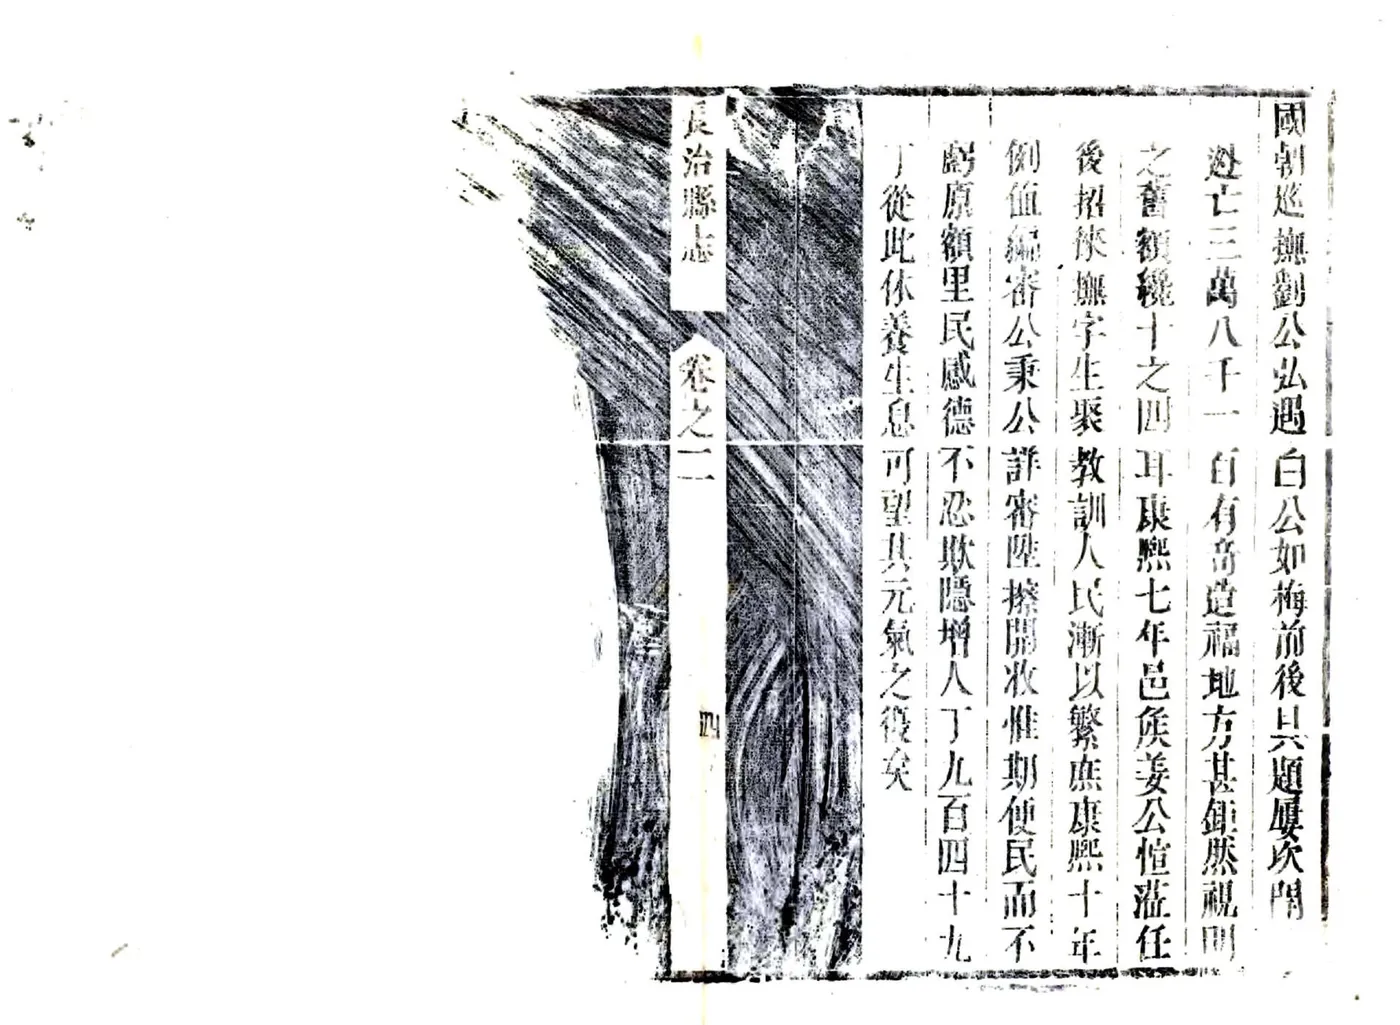 國朝巡撫劉公弘遇白公如梅前後具題屢次開
逃亡三萬八千一百有奇造福地方甚鉅然視明
之舊額纔十之四耳康熙七年邑矦姜公愃蒞任
後招徠撫字生聚教訓人民漸以繁庶康熙十年
例值編審公秉公詳審陞擦開收惟期便民而不
虧原額里民感德不忍欺隱增人丁九百四十九
丁從此休養生息可望其元氣之復矣
長治縣志
卷之二
四